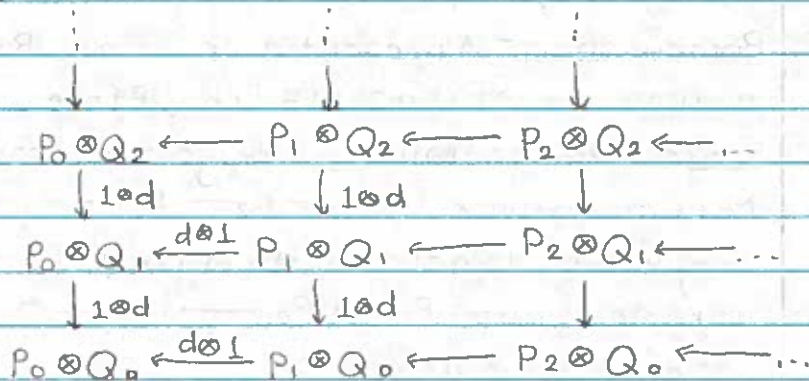 ⋮ ⋮ ⋮
↓ ↓ ↓
P₀ ⊗ Q₂ ← P₁ ⊗ Q₂ ← P₂ ⊗ Q₂ ← ...
↓ 1⊗d ↓ 1⊗d ↓
P₀ ⊗ Q₁ ←d⊗1 P₁ ⊗ Q₁ ← P₂ ⊗ Q₁ ← ...
↓ 1⊗d ↓ 1⊗d ↓
P₀ ⊗ Q₀ ←d⊗1 P₁ ⊗ Q₀ ← P₂ ⊗ Q₀ ← ...